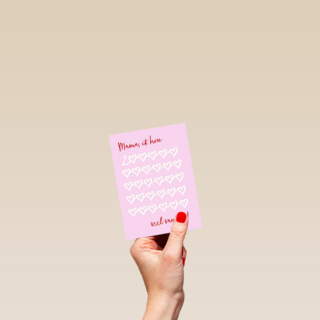 Mama, ik hou
Z
veel van